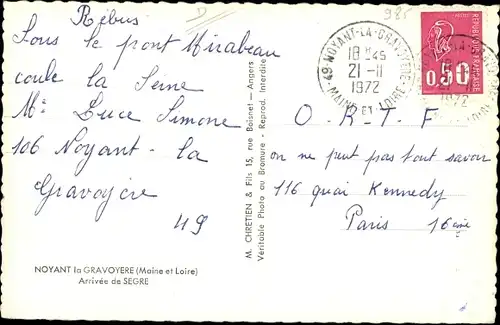 Rébus
Sous le pont Mirabeau
coule la Seine
Me Luce Simone
106 Noyant-la
Gravoyère
49
NOYANT la GRAVOYERE (Maine et Loire)
Arrivée de SEGRE
M. CHRETIEN & Fils 15, rue Boisnet - Angers
Véritable Photo au Bromure - Reprod. Interdite
D
49-NOYANT-LA-GRAVOYERE
18H45
21-11
1972
MAINE-ET-LOIRE
POSTES
REPUBLIQUE FRANÇAISE
0,50
O. R. T. F
on ne peut pas tout savoir
116 quai Kennedy
Paris 16ème